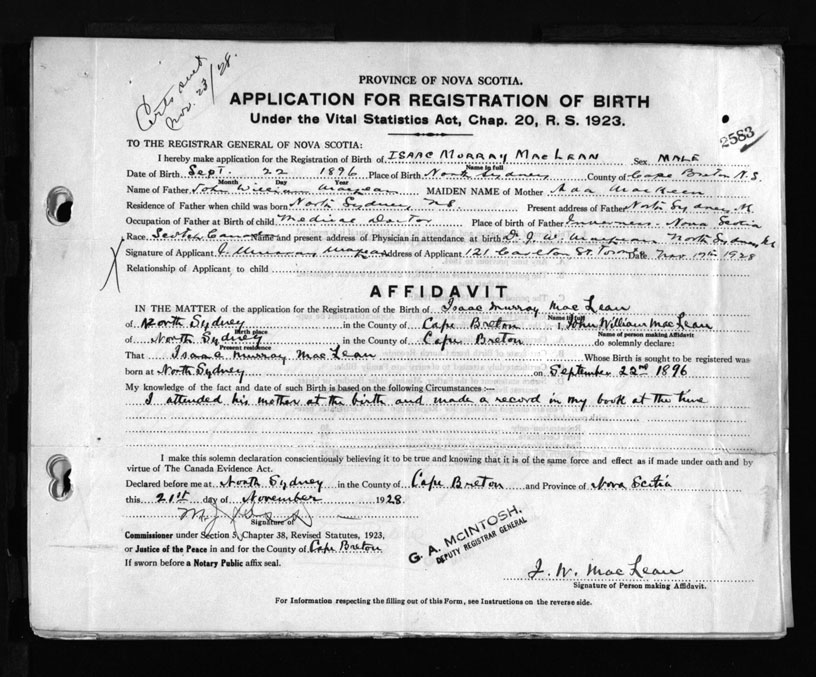 Certs sent
Nov. 23/28.
PROVINCE OF NOVA SCOTIA.
APPLICATION FOR REGISTRATION OF BIRTH
Under the Vital Statistics Act, Chap. 20, R. S. 1923.
2583
TO THE REGISTRAR GENERAL OF NOVA SCOTIA:
I hereby make application for the Registration of Birth of ISAAC MURRAY MACLEAN Sex MALE
Name in full
Date of Birth Sept. 22 1896 Place of Birth North Sydney County of Cape Breton N.S.
Month Day Year
Name of Father John William Maclean MAIDEN NAME of Mother Ada MacKeen
Residence of Father when child was born North Sydney N.S. Present address of Father North Sydney N.S.
Occupation of Father at Birth of child Medical Doctor Place of birth of Father Inverness Nova Scotia
Race Scotch Name and present address of Physician in attendance at birth Dr. J. W. Maclean North Sydney N.S.
Signature of Applicant I. Murray Maclean Address of Applicant 121 Carleton St. Date Nov 17th 1928
Relationship of Applicant to child
AFFIDAVIT
IN THE MATTER of the application for the Registration of the Birth of Isaac Murray MacLean
Name in full
of North Sydney in the County of Cape Breton I, John William MacLean
Birth place Name of person making Affidavit
of North Sydney in the County of Cape Breton do solemnly declare:
Present residence
That Isaac Murray MacLean Whose Birth is sought to be registered was
born at North Sydney on September 22nd 1896
My knowledge of the fact and date of such Birth is based on the following Circumstances :—
I attended his mother at the birth and made a record in my book at the time
I make this solemn declaration conscientiously believing it to be true and knowing that it is of the same force and effect as if made under oath and by
virtue of The Canada Evidence Act.
Declared before me at North Sydney in the County of Cape Breton and Province of Nova Scotia
this 21st day of November 1928.
Signature of
Commissioner under Section 5, Chapter 38, Revised Statutes, 1923,
or Justice of the Peace in and for the County of Cape Breton
If sworn before a Notary Public affix seal.
G. A. McINTOSH,
DEPUTY REGISTRAR GENERAL
J. W. MacLean
Signature of Person making Affidavit.
For Information respecting the filling out of this Form, see Instructions on the reverse side.